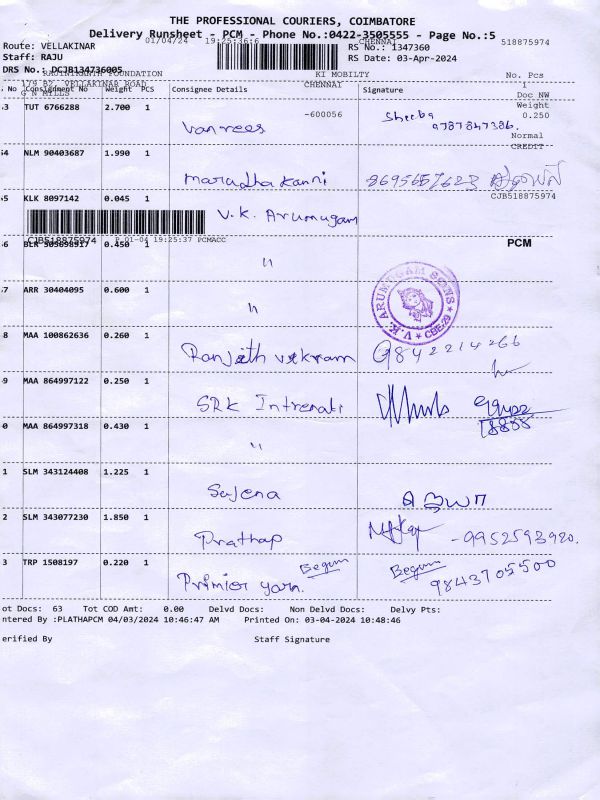 THE PROFESSIONAL COURIERS, COIMBATORE
Delivery Runsheet - PCM - Phone No.:0422-3505555 - Page No.:5
01/04/24 19:25:36:6 CHENNAI 518875974
Route: VELLAKINAR RS No.: 1347360
Staff: RAJU RS Date: 03-Apr-2024
DRS No.: DCJB134736005
FOUNDATION KI MOBILTY No. Pcs
VELLAKINAR ROAD CHENNAI 1
G N MILLS Doc NW
No Consignment No Weight PCS Consignee Details Signature
Weight
3 TUT 6766288 2.700 1 -600056 0.250
Vanrees Sheeba
9787847386.
Normal
CREDIT
4 NLM 90403687 1.990 1
Marudha Kanni
5 KLK 8097142 0.045 1 CJB518875974
V.K. Arumugam
CJB518875974 P 01-04 19:25:37 PCMACC PCM
6 0.450 1
"
7 ARR 30404095 0.600 1
"
V.K. ARUMUGAM SONS CBE-29
8 MAA 100862636 0.260 1
Ranjith vikram 9842214266
9 MAA 864997122 0.250 1
SRK Intrenati
0 MAA 864997318 0.430 1
"
1 SLM 343124408 1.225 1
Sajena
2 SLM 343077230 1.850 1
Prathap - 9952593920.
3 TRP 1508197 0.220 1
Primier yarn. Begum Begum
9843705500
ot Docs: 63 Tot COD Amt: 0.00 Delvd Docs: Non Delvd Docs: Delvy Pts:
ntered By :PLATHAPCM 04/03/2024 10:46:47 AM Printed On: 03-04-2024 10:48:46
erified By Staff Signature